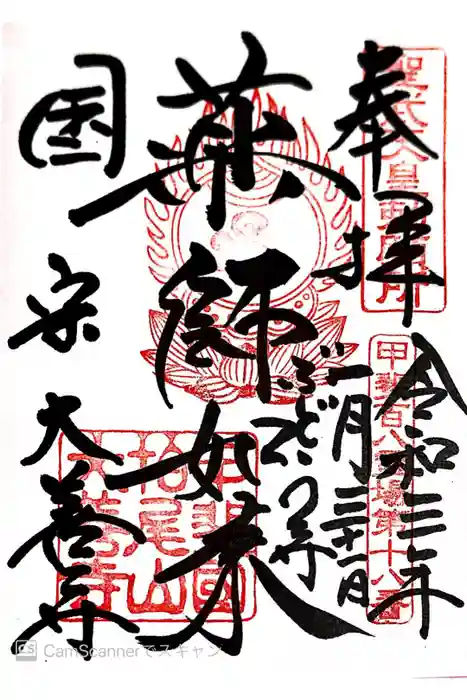 奉拝
聖武天皇勅願所
甲斐百八霊場第十八番
令和三年
一月三十一日
ぶどう寺
薬師如来
甲斐國
柏尾山
大善寺
国宝
大善寺
CS CamScannerでスキャン